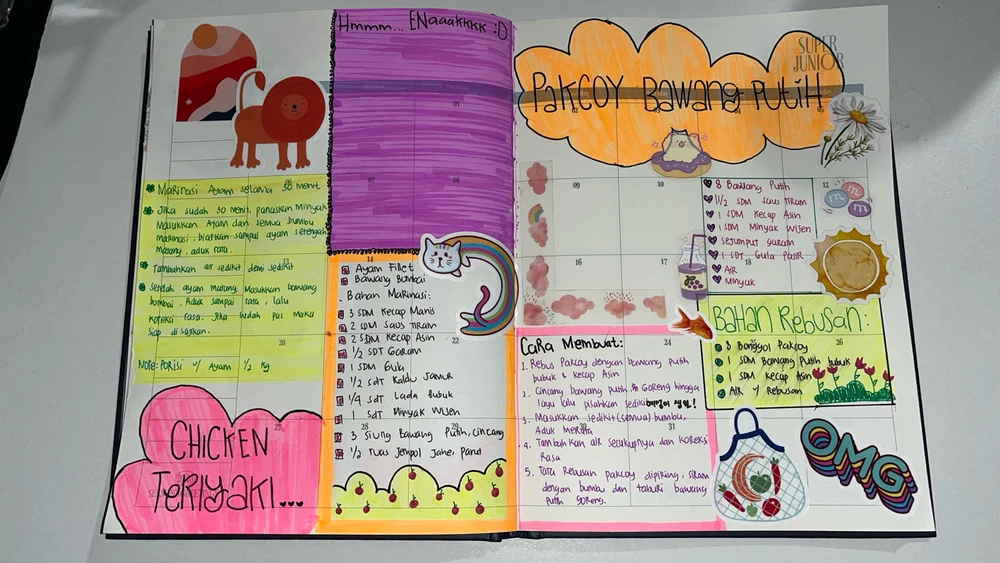 Hmmm... ENaaakkkk :D
Marinasi Ayam selama 30 menit
Jika sudah 30 menit, panaskan Minyak
Masukkan Ayam dan semua bumbu
marinasi, biarkan sampai ayam setengah
matang, aduk rata.
Tambahkan air sedikit demi sedikit
Setelah ayam matang, Masukkan bawang
bombai, Aduk sampai rata, lalu
koreksi rasa. Jika sudah pas maka
siap di sajikan.
Note: Porisi u/ Ayam 1/2 kg
CHICKEN
TERIYAKI...
Ayam Fillet
Bawang Bumbai
Bahan Marinasi:
3 SDM Kecap Manis
2 SDM Saus Tiram
2 SDM Kecap Asin
1/2 SDT Garam
1 SDM Gula
1/2 SdT Kaldu Jamur
1/4 SdT Lada bubuk
1 SdT Minyak Wijen
3 Siung Bawang Putih, cincang
1/2 ruas Jempol Jahe, Parut
SUPER
JUNIOR
PAKCOY BAWANG PUTIH
8 Bawang Putih
1 1/2 SDM Saus Tiram
1 SDM Kecap Asin
1 SDM Minyak Wijen
Sejumput Garam
1 SDT Gula Pasir
Air
Minyak
BAHAN REBUSAN:
3 Bonggol Pakcoy
1 SDM Bawang Putih bubuk
1 SDM Kecap Asin
Air u/ Rebusan
Cara Membuat:
1. Rebus Pakcoy dengan bawang putih
bubuk & kecap Asin
2. Cincang bawang putih & Goreng hingga
layu lalu pisahkan sedikit
3. Masukkan sedikit (semua) bumbu,
Aduk Merata
4. Tambahkan air secukupnya dan koreksi
Rasa
5. Tata Rebusan pakcoy dipiring, siram
dengan bumbu dan taburi bawang
putih goreng.
OMG
m
m
m
01
07
08
09
10
12
13
14
16
17
18
20
22
24
27
28
29
30
31